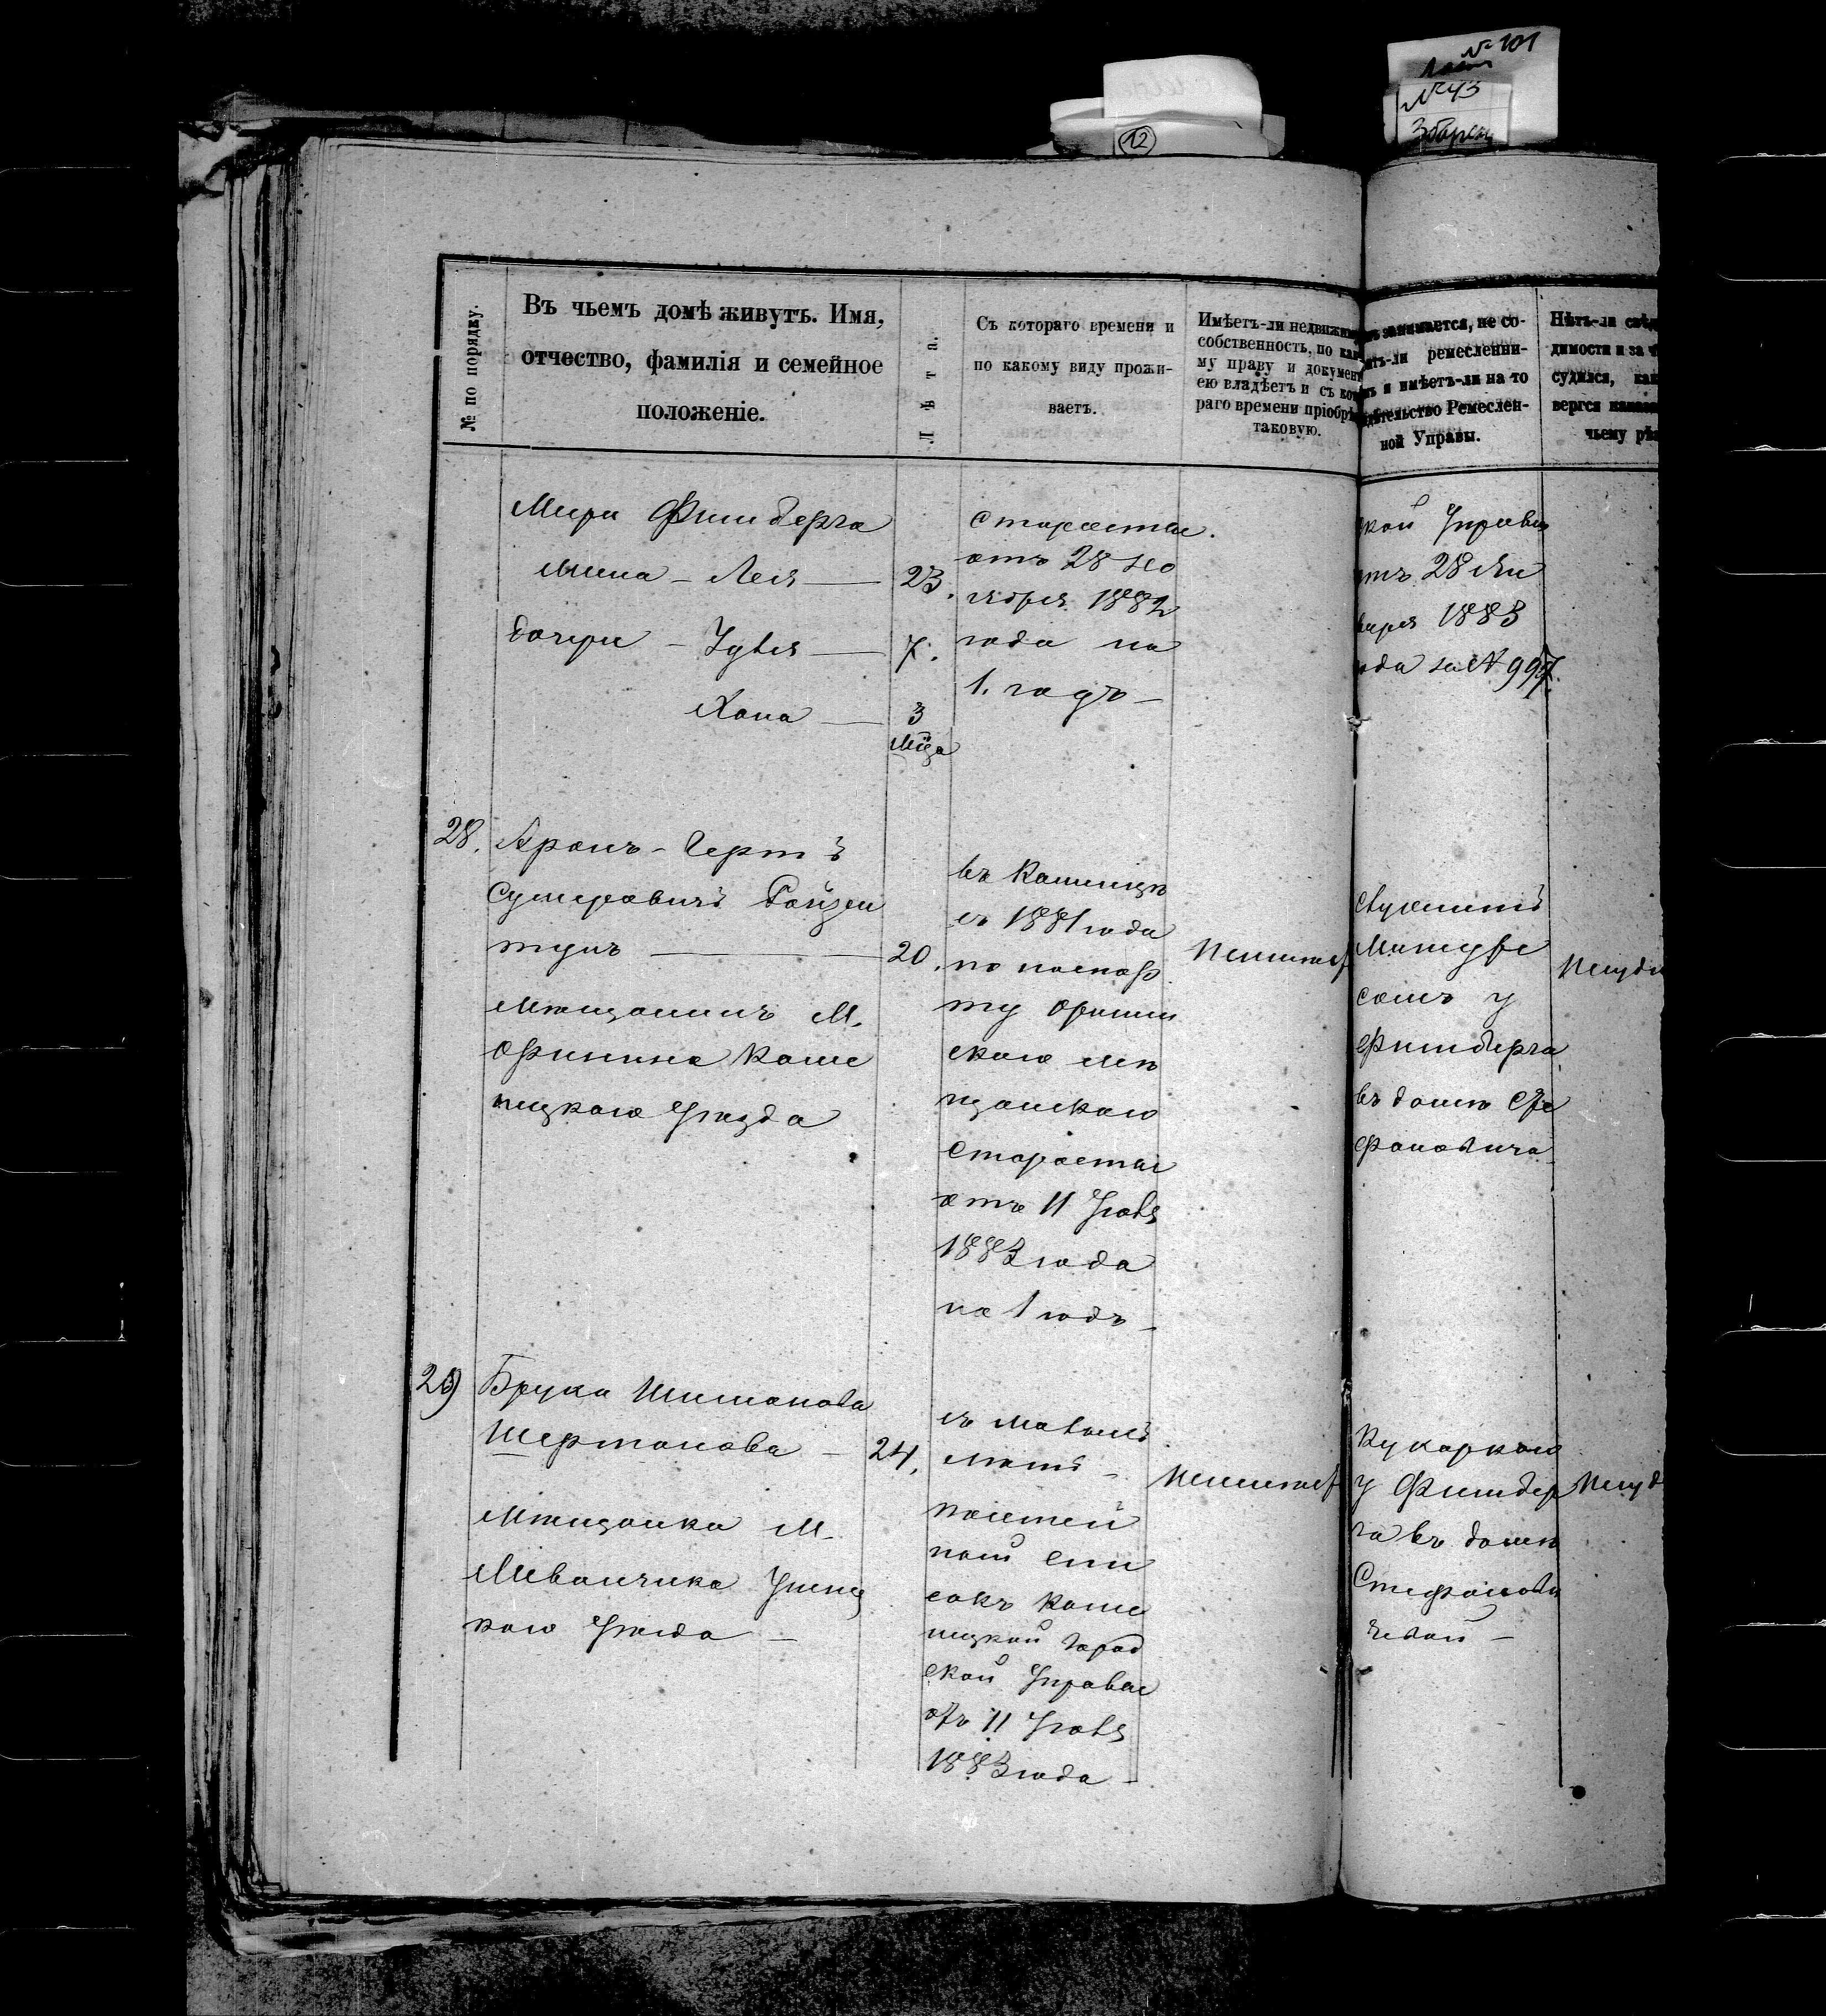 № 101
№ 43
12
№ по порядку.
Въ чьемъ домѣ живутъ. Имя,
отчество, фамилія и семейное
положеніе.
Лѣта.
Съ котораго времени и
по какому виду прожи-
ваетъ.
Имѣетъ-ли недвижим
собственность, по как
му праву и документ
ею владѣетъ и съ кот
раго времени пріобрѣ
таковую.
занимается, не со-
ремесленни-
и имѣетъ-ли на то
Ремеслен-
ной Управы.
Нѣтъ-ли свѣд
димости и за ч
судился, как
вергся наказ
чьему рѣ
Фишберга
Лея 23.
дочери
Хана 3
мѣца
старосты
отъ 28 но
ября 1882
года на
1. годъ
кой Управы
отъ 28 Ян
варя 1883
ода за № 997.
28. Аронъ-Герть
Ройзен
20.
мѣщанинъ м.
Фринина Каме
нецкаго Уѣзда
въ Каменцѣ
съ 1881 года
по паспор
ту Фринин
скаго мѣ
щанскаго
старосты
отъ 11 Іюля
1883 года
на 1 годъ
Неимѣет
служитъ
сомъ у
Фишберга
въ домѣ Сте
фановича
Несуди
29) Шимонова
24.
мѣщанка м.
Миванчика Ушиц
каго Уѣзда
съ малыхъ
лѣтъ
посемей
ный спи
сокъ Каме
нецкой Город
ской Управы
отъ 11 Іюля
1883 года
Неимѣет
Кухаркою
у Фишбер
га въ домѣ
Стефанови
чевой
Несуд